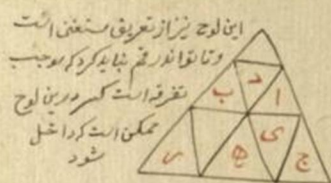 این لوح نیز از تعریف مستغنی است
و تا تواند رقم نباید کرد که موجب
تفرقه است کسر درین لوح
ممکن است که داخل
شود
د
ب ا
ی
ج